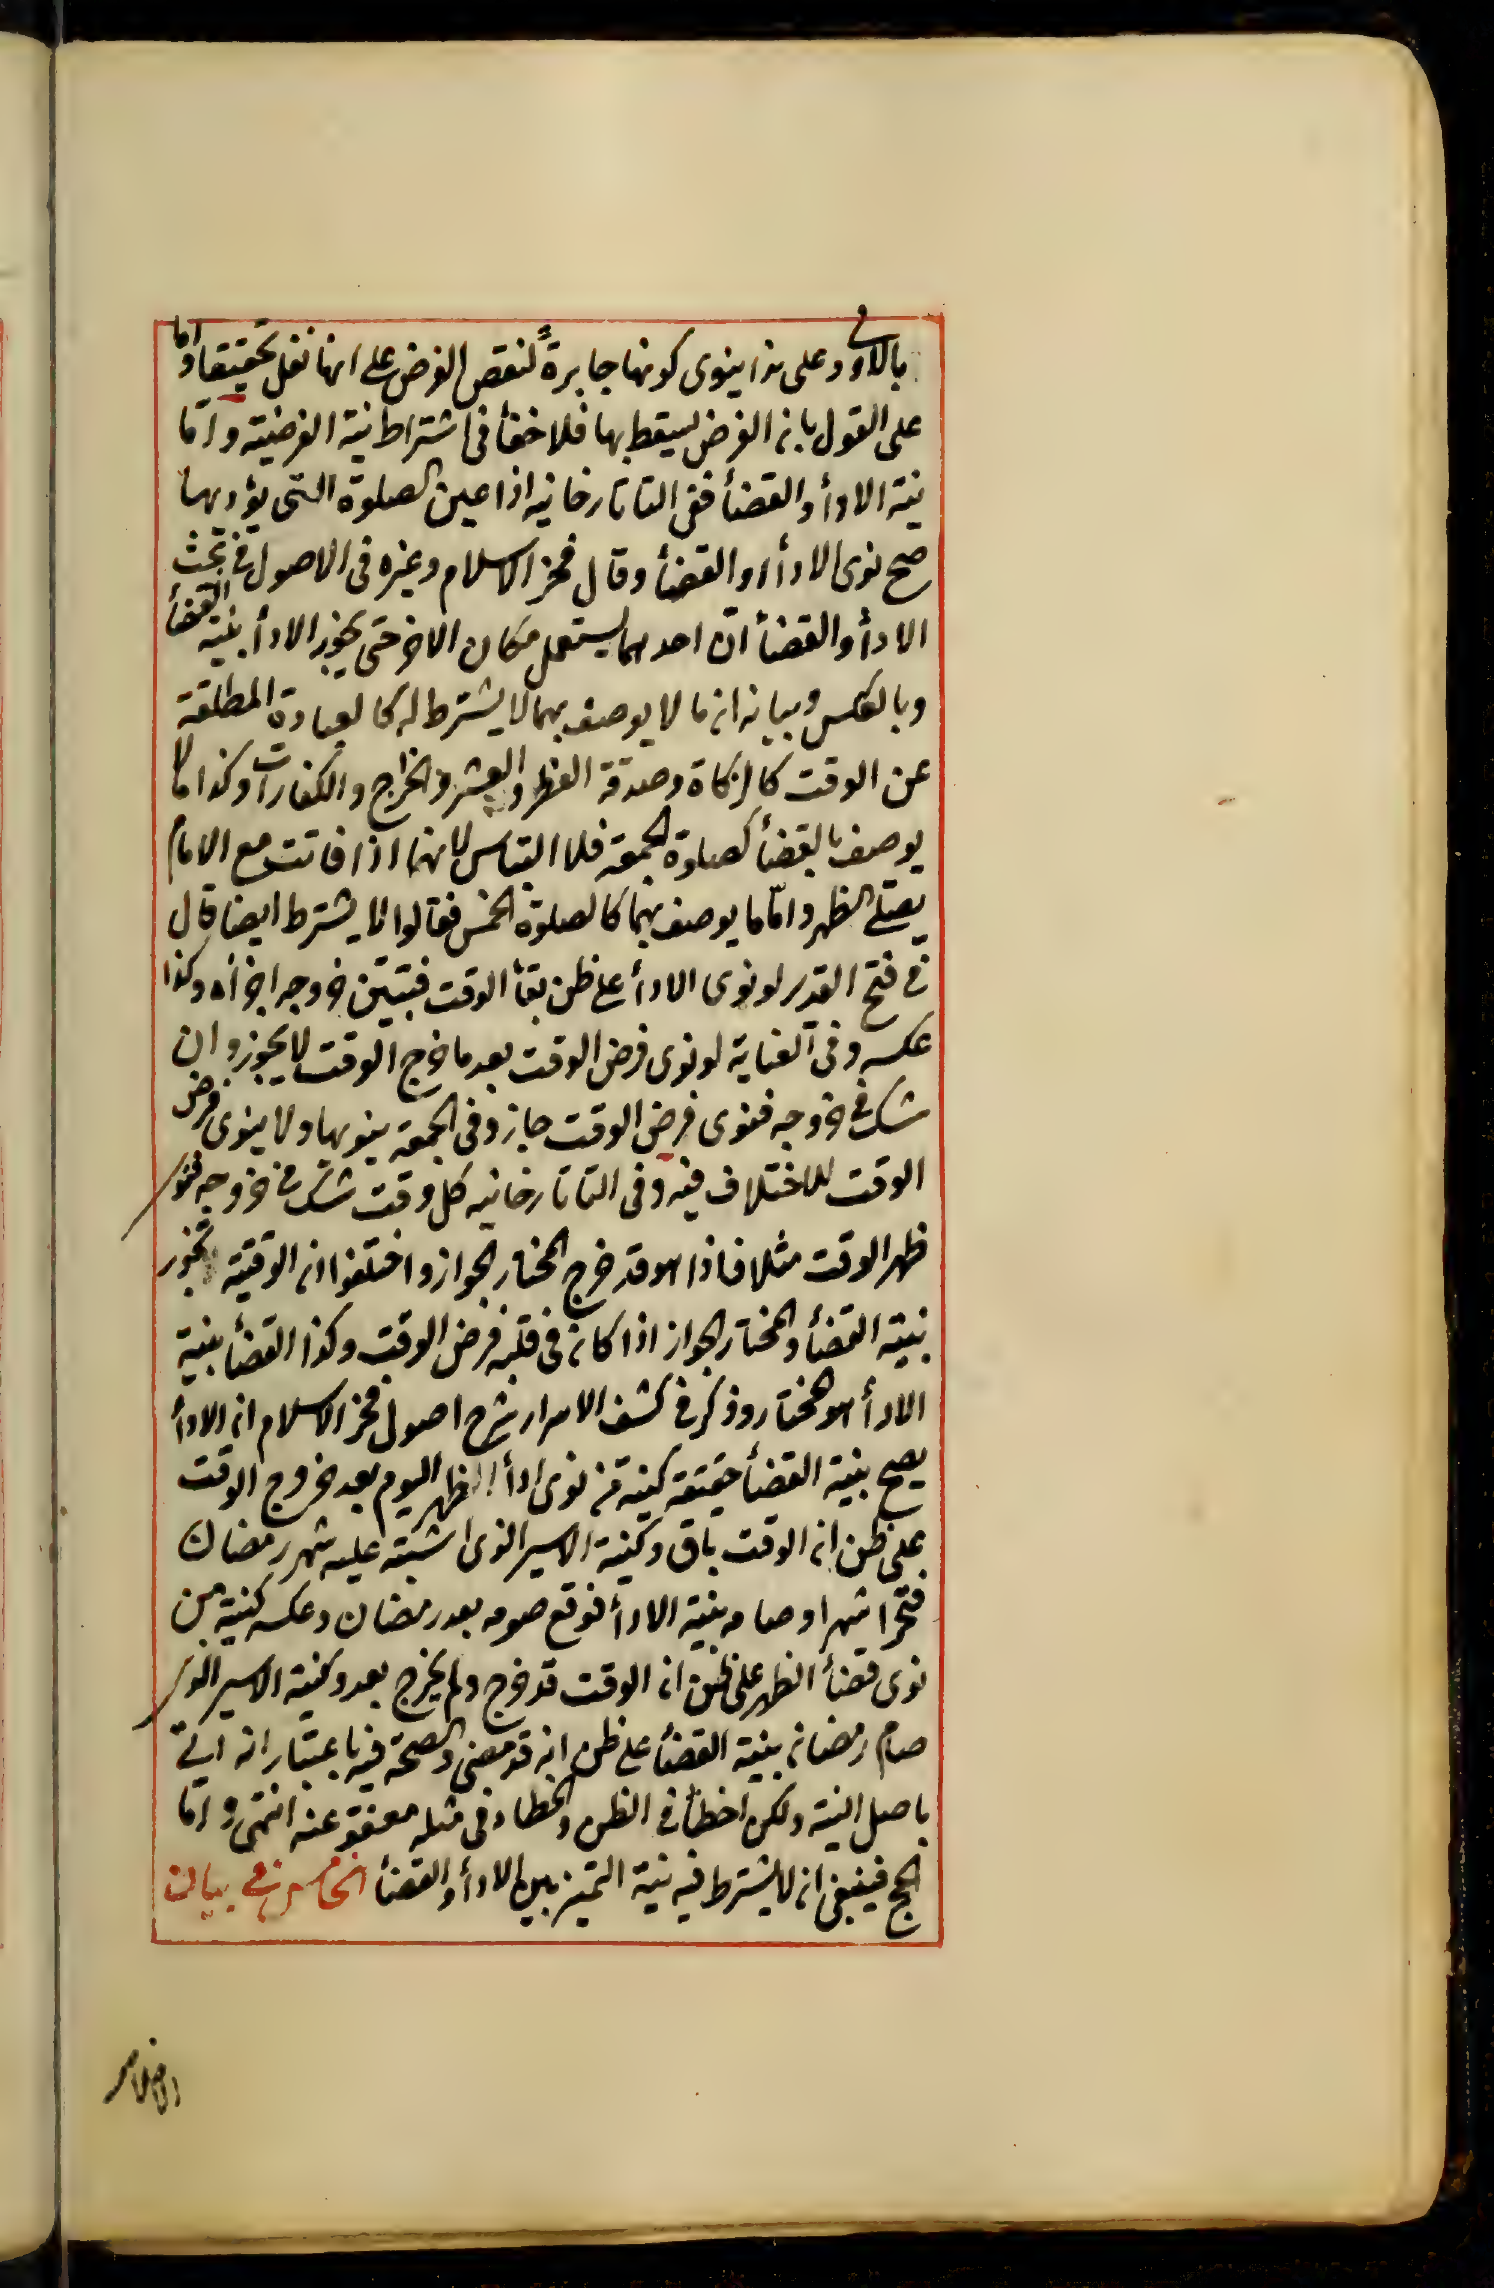 بالاولى وعلى هذا ينوى كونها جابرة لنقص الفرض على انها نفل تحقيقا واما
على القول بان الفرض يسقط بها فلا خفأ فى اشتراط نية الفرضية واما
نية الادأ والقضأ ففى التاتارخانيه اذا عين الصلوة التى يؤديها
صح نوى الادأ او القضأ وقال فخر الاسلام وغيره فى الاصول فى بحث
الادأ والقضأ ان احدهما يستعمل مكان الاخر حتى يجوز الادأ بنية القضأ
وبالعكس وبيانه ان ما لا يوصف بهما لا يشترط له كالعبادة المطلقة
عن الوقت كالزكاة وصدقة الفطر والعشر والخراج والكفارات وكذا ما لا
يوصف بالقضأ كصلوة الجمعة فلا التباس لانها اذا فاتت مع الامام
يصلى الظهر واما ما يوصف بهما كالصلوة الخمس فقالوا لا يشترط ايضا قال
فى فتح القدير لو نوى الادأ على ظن بقأ الوقت فتبين خروجه اجزأه وكذا
عكسه وفى العناية لو نوى فرض الوقت بعد ما خرج الوقت لا يجوز وان
شك فى خروجه فنوى فرض الوقت جاز وفى الجمعة ينويها ولا ينوى فرض
الوقت للاختلاف فيه وفى التاتارخانيه كل وقت شك فى خروجه فنوى
ظهر الوقت مثلا فاذا هو قد خرج المختار الجواز واختلفوا ان الوقتية تجوز
بنية القضأ والمختار الجواز اذا كان فى قلبه فرض الوقت وكذا القضأ بنية
الادأ هو المختار وذكر فى كشف الاسرار شرح اصول فخر الاسلام ان الادأ
يصح بنية القضأ حقيقة كنية من نوى ادأ الظهر اليوم بعد خروج الوقت
على ظن ان الوقت باق وكنية الاسير الذى اشتبه عليه شهر رمضان
فتحرا شهرا وصامه بنية الادأ فوقع صومه بعد رمضان وعكسه كنية من
نوى قضأ الظهر على ظن ان الوقت قد خرج ولم يخرج بعد وكنية الاسير الذى
صام رمضان بنية القضأ على ظن انه قد مضى والصحة فيه باعتبار انه اتى
باصل النية ولكن اخطأ فى الظن والخطاء فى مثله معفو عنه انتهى واما
الحج فينبغى ان لا يشترط فيه نية التميز بين الادأ والقضأ الخامس فى بيان
الاخلاص